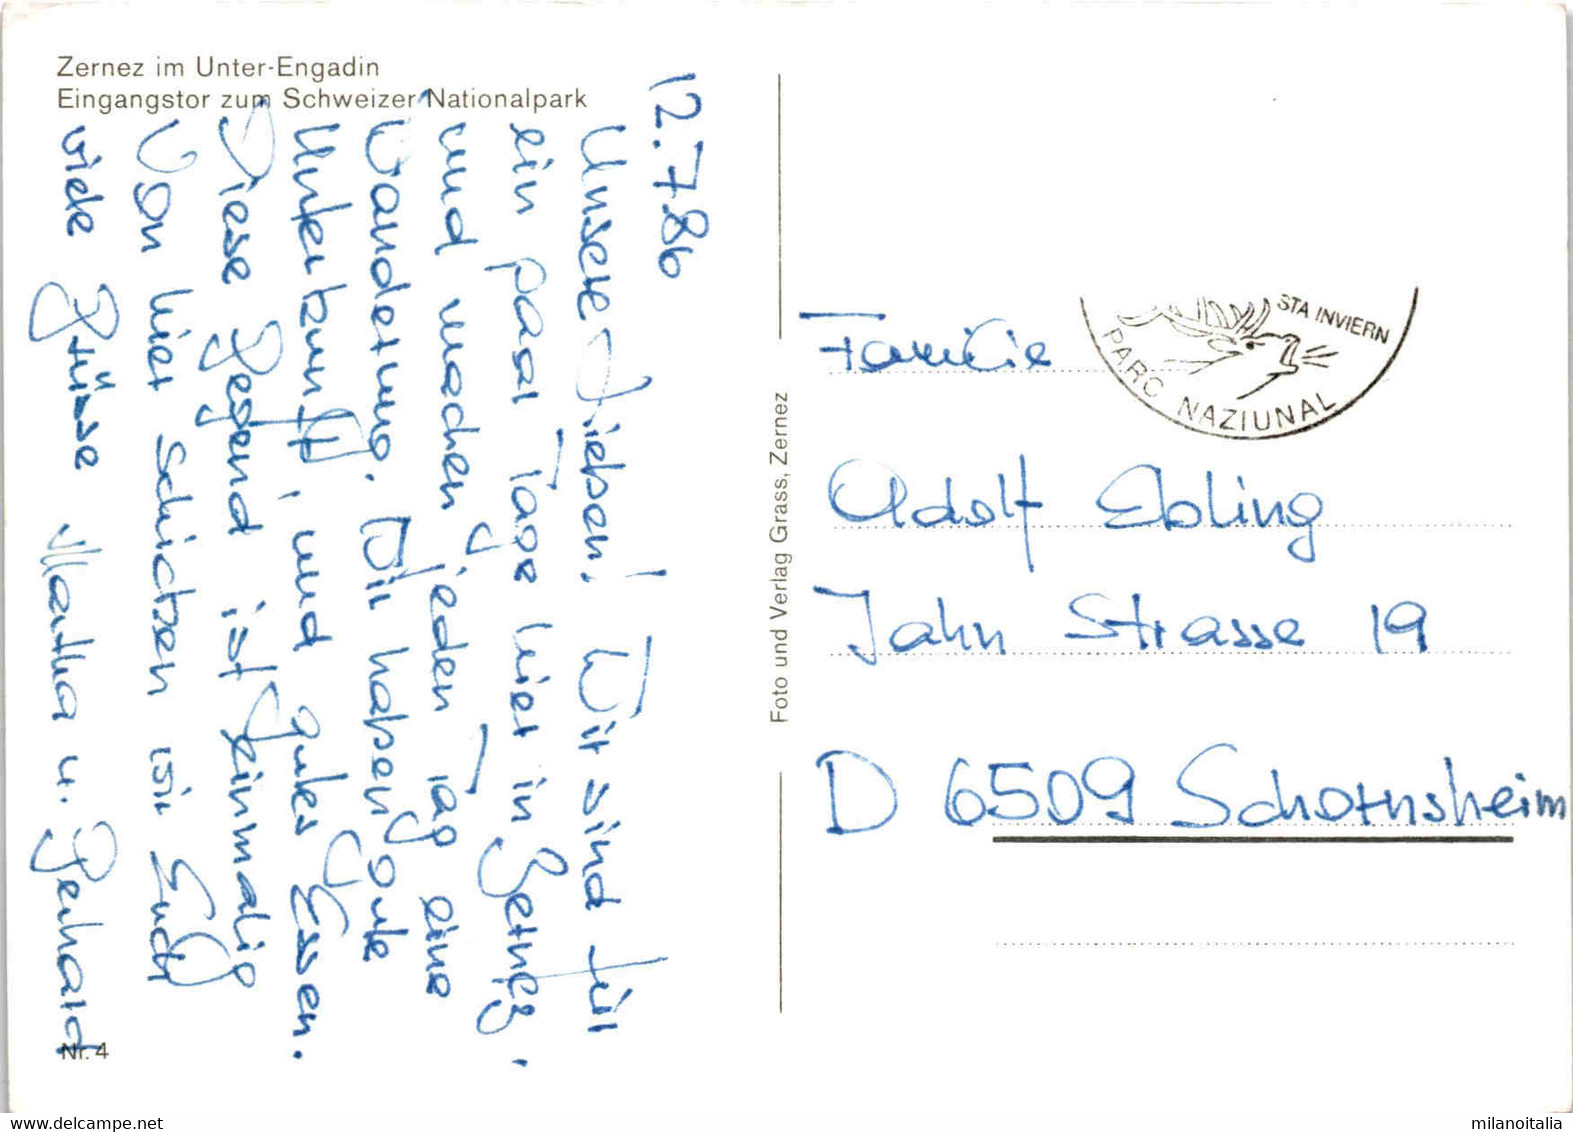 Zernez im Unter-Engadin
Eingangstor zum Schweizer Nationalpark
12.7.86
Unsere Lieben! Wir sind für
ein paar Tage hier in Zernez,
und machen jeden Tag eine
Wanderung. Wir haben gute
Unterkunft, und gutes Essen.
Diese Gegend ist einmalig
Von hier schicken wir Euch
viele Grüsse Martha u. Gerhard
Nr. 4
Foto und Verlag Grass, Zernez
STA INVIERN
PARC NAZIUNAL
Familie
Adolf Ebling
Jahn Strasse 19
D 6509 Schornsheim
www.delcampe.net
milanoitalia